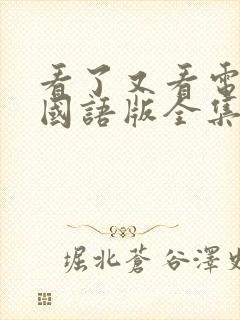 看了又看電
國語版全集
堀北蒼谷澤